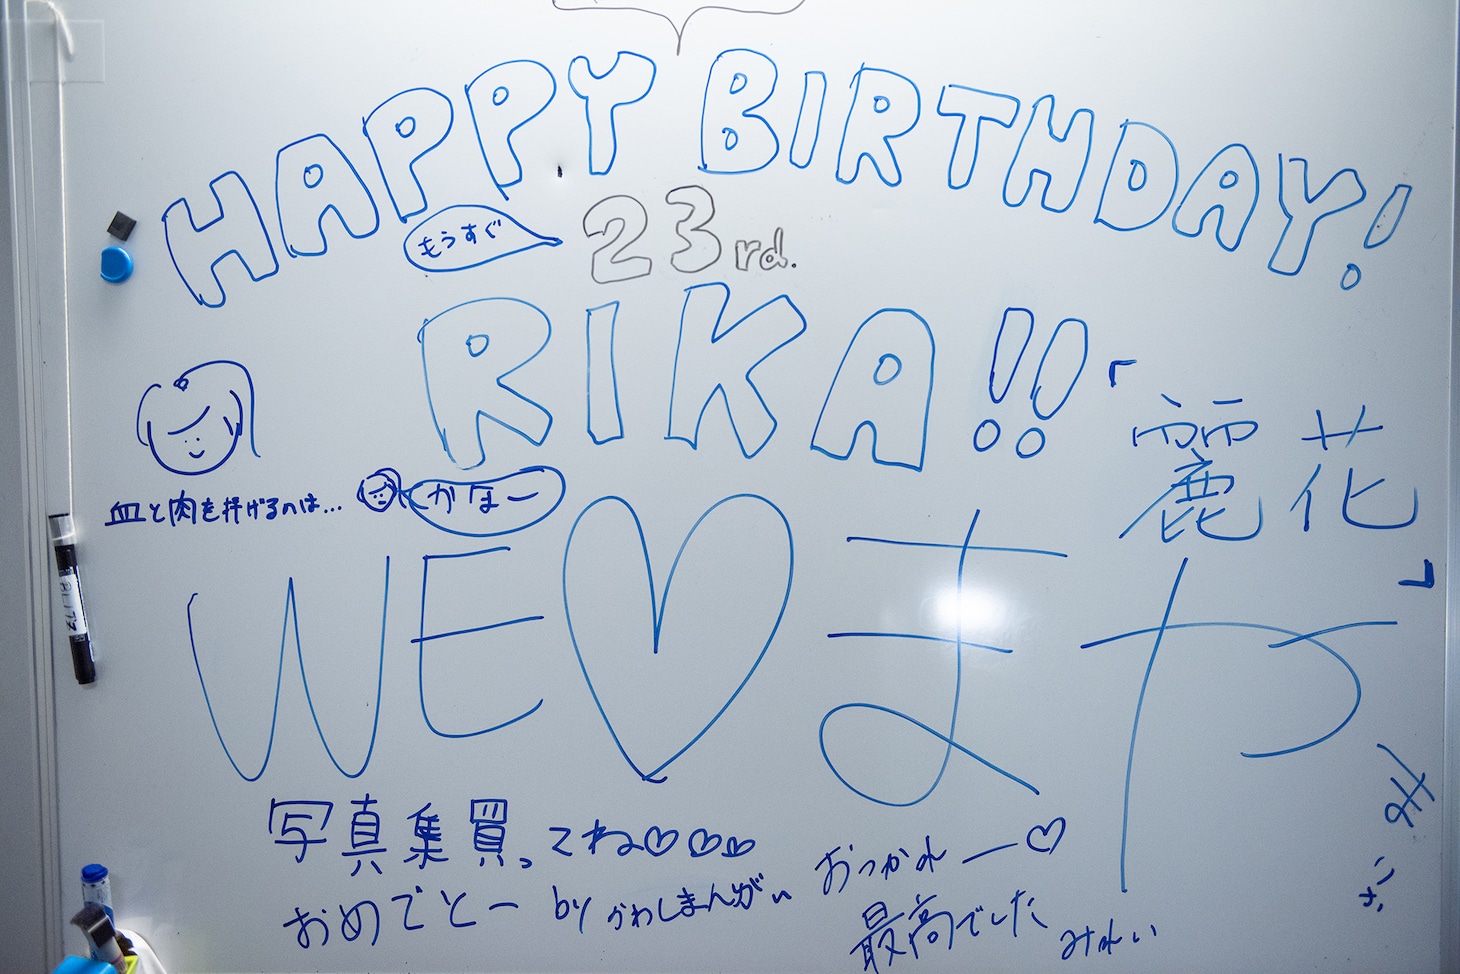 HAPPY BIRTHDAY!
もうすぐ
23rd.
RIKA!!
「麗花」
血と肉を捧げるのは…
かなー
WE♡まや
写真集買ってね♡♡♡
おめでとー by かわしまんがい
おつかれー♡
最高でした
みれい